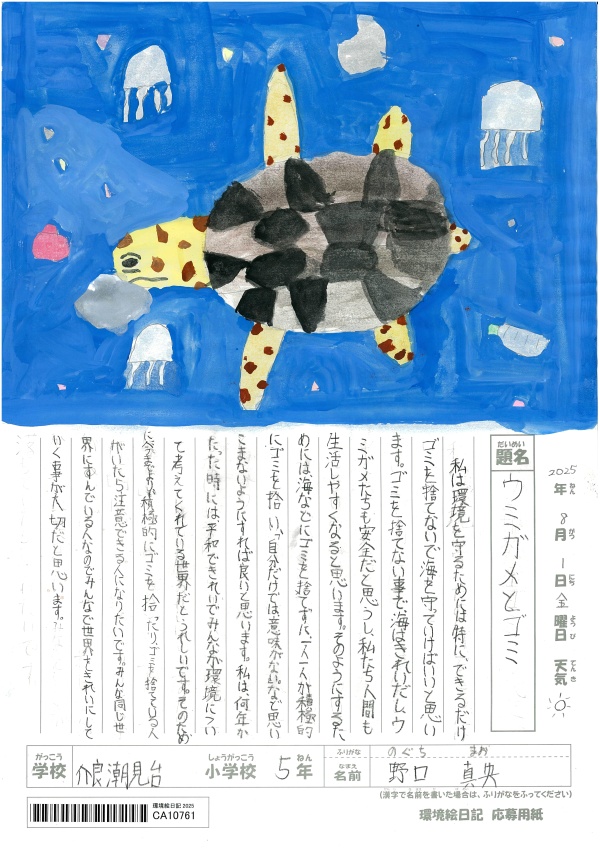 2025年 8月 1日 金曜日 天気
ねん がつ にち ようび てんき
題名 ウミガメとゴミ
だいめい
私は環境を守るためには特に、できるだけ
ゴミを捨てないで海を守っていけばいいと思い
ます。ゴミを捨てない事で海はきれいだし、ウ
ミガメたちも安全だと思うし、私たち人間も
生活しやすくなると思います。そのようにするた
めには、海などにゴミを捨てずに、一人一人が積極的
にゴミを拾い、「自分だけでは、意味がない。」など思い
こまないようにすれば良いと思います。私は、何年か
たった時には平和できれいでみんなが環境につい
て考えてくれている世界だとうれしいです。そのため
に今までより積極的にゴミを拾ったり、ゴミを捨てている人
がいたら注意できる人になりたいです。みんな同じ世
界にすんでいる人なのでみんなで世界をきれいにして
いく事が大切だと思います。
がっこう しょうがっこう ねん
学校 潮見台 小学校 5年
ふりがな のぐち まお
なまえ
名前 野口 真央
(漢字で名前を書いた場合は、ふりがなをふってください)
環境絵日記 2025
CA10761
環境絵日記 応募用紙